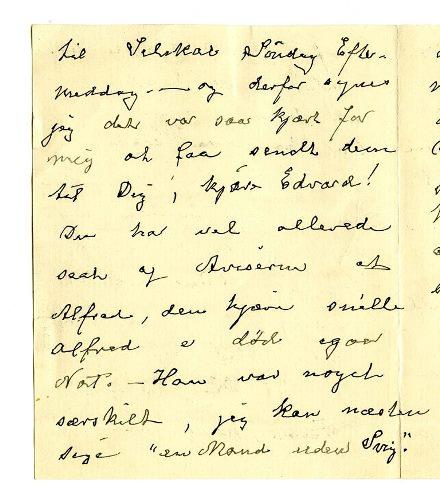 til Selskab Söndag Efter-
middag — og derfor synes
jeg det var saa kjært for
mig at faa sendt dem
til Dig, kjære Edvard!
Du har vel allerede
seet af Aviserne at
Alfred, den kjære snille
Alfred e död igaar
Nat. — Han var noget
særskilt, jeg kan næsten
sige "en Mand uden Svig".